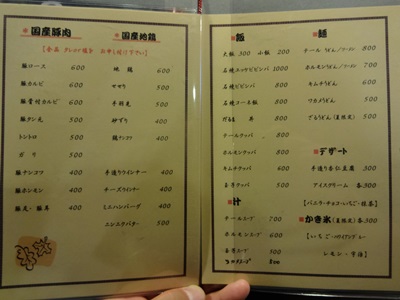 国産豚肉
豚ロース 600
豚カルビ 600
豚骨付カルビ 600
豚タン元 500
トントロ 500
ガリ 500
豚テンコツ 400
豚ホルモン 400
豚足・豚耳 400
国産地鶏
地鶏 600
セセリ 500
手羽先 500
砂ずり 400
鶏ナンコツ 400
手造りウインナー 400
チーズウインナー 400
ミニハンバーグ 400
ニンニクバター 500
飯
大飯 300 小飯 200
石焼ユッケビビンバ 1000
石焼ビビンバ 800
800
クッパ 800
ホルモンクッパ 800
クッパ 500
汁
テールスープ 700
ホルモンスープ 600
500
麺
テールうどん/ラーメン 800
ホルモンうどん/ラーメン 700
キムチうどん 600
ワカメうどん 500
500
デザート
手造り杏仁豆腐 300
アイスクリーム 各300
【バニラ・チョコ・いちご・抹茶】
かき氷(夏限定) 各300
レモン・宇治】